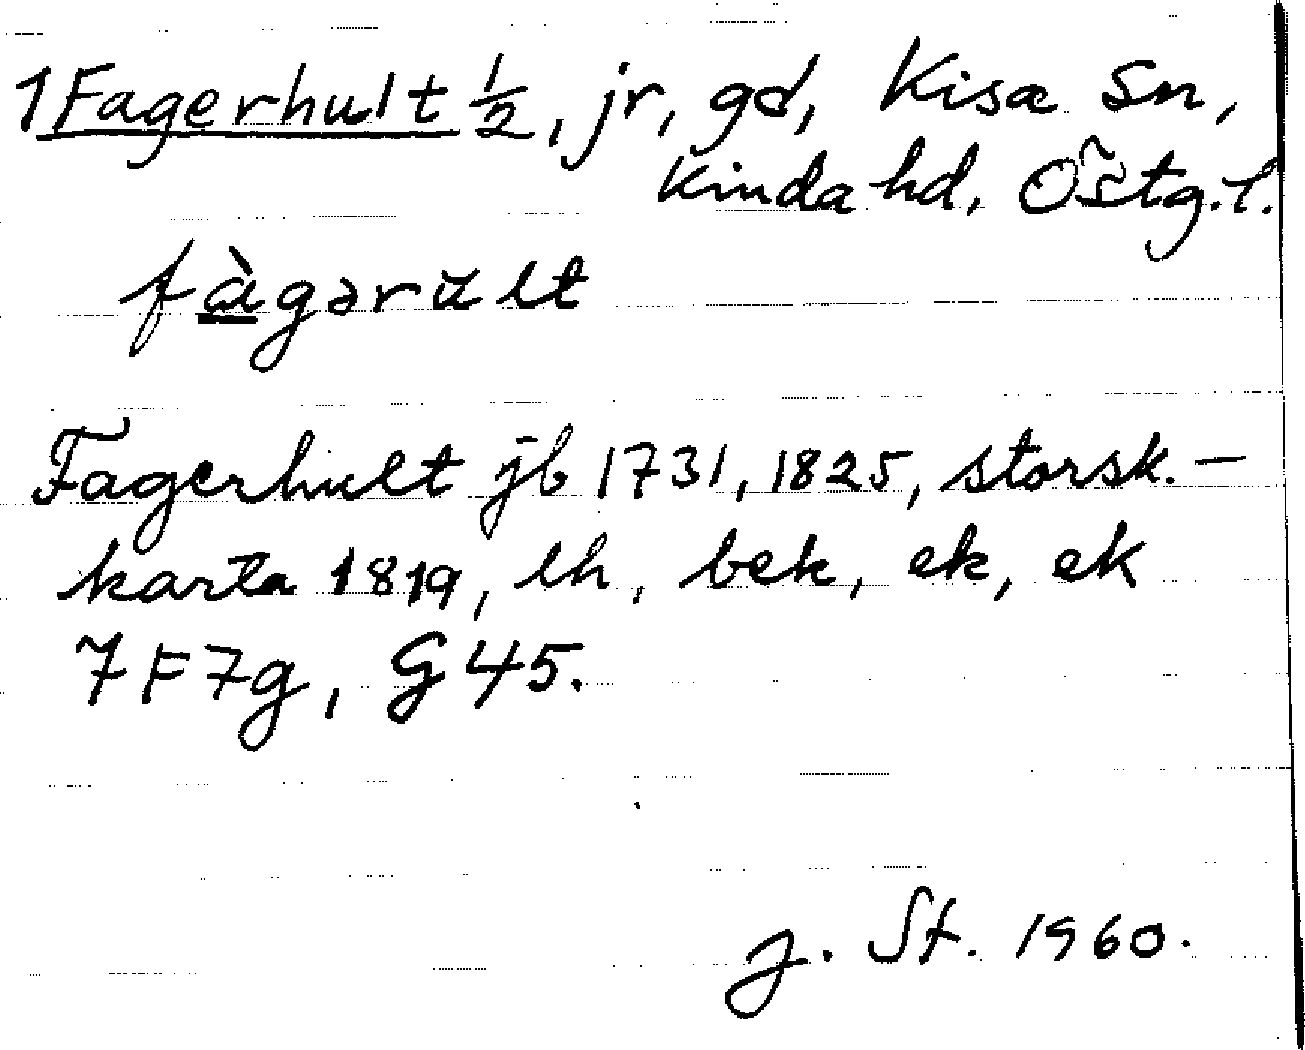 1 Fagerhult ½, jr, gd, Kisa Sn,
Kinda hd, Östg. l.
fàgərült
Fagerhult jb 1731, 1825, storsk.-
karta 1819, lh, bek, ek, ek
7F7g, G45.
J. St. 1960.